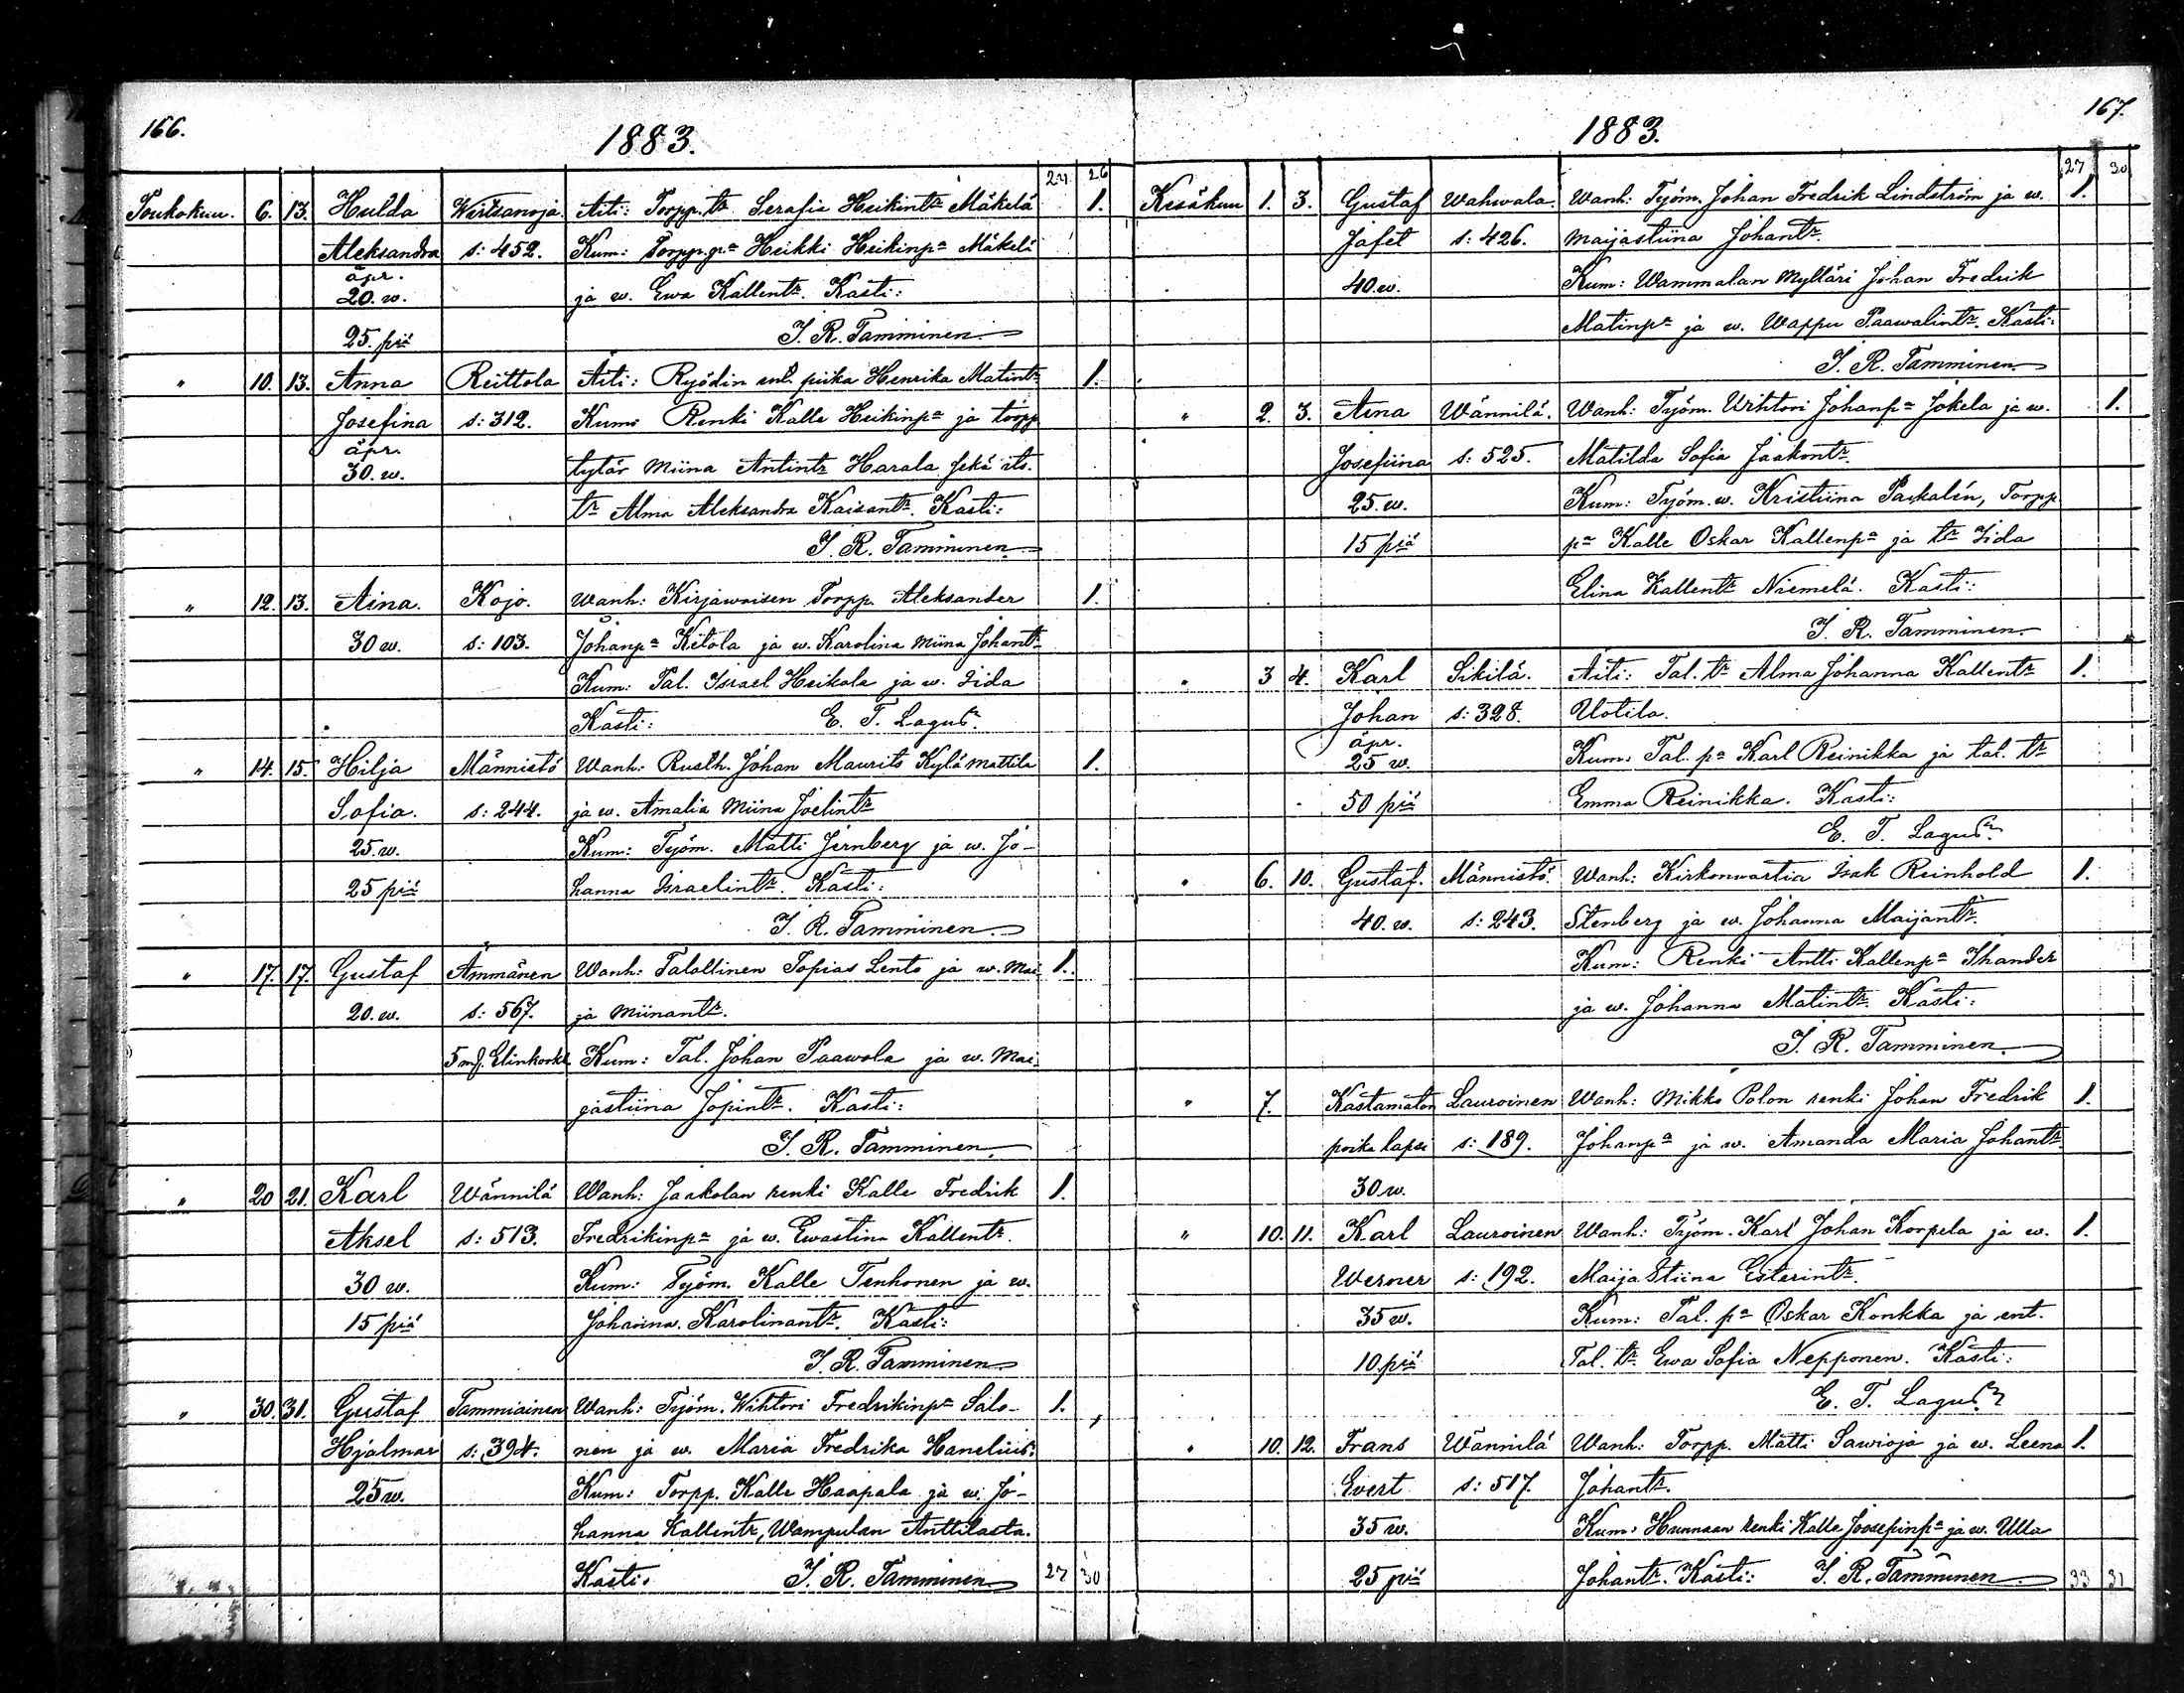 166.
1883.
24 26
Toukokuu. 6. 13. Hulda Wirtsanoja. Äiti: Torpp. tr Serafia Heikintr Mäkelä 1.
Aleksandra s: 452. Kum: Torpp. pa Heikki Heikinpa Mäkelä
äpr.
20. w. ja w. Ewa Kallentr. Kasti:
25. piä J. R. Tamminen
" 10. 13. Anna Reittola Äiti: Ryödin ent. piika Henrika Matintr 1.
Josefina s: 312. Kum: Renki Kalle Heikinpa ja torpp.
äpr.
30. w. tytär Miina Antintr Harala sekä its.
tr Alma Aleksandra Kaisantr. Kasti:
J. R. Tamminen
" 12. 13. Aina. Kojo. Wanh: Kirjawaisen Torpp. Aleksander 1.
30 w. s: 103. Johanpa Ketola ja w. Karolina Miina Johantr
Kum: Tal. Israel Heikola ja w. Iida
Kasti: E. T. Lagus
" 14. 15. Hilja Männistö Wanh: Rusth. Johan Maurits Kylämattila 1.
Sofia. s: 244. ja w. Amalia Miina Joelintr
25. w. Kum: Työm. Matti Jernberg ja w. Jo-
25 piä hanna Israelintr. Kasti:
J. R. Tamminen
" 17. 17. Gustaf Ammänen Wanh: Talollinen Topias Lento ja w. Mai- 1.
20. w. s: 567. ja Miinantr.
5 mf. Elinkorko Kum: Tal. Johan Paawola ja w. Mai-
jastiina Jopintr. Kasti:
J. R. Tamminen
" 20 21. Karl Wännilä Wanh: Jaakolan renki Kalle Fredrik 1.
Aksel s: 513. Fredrikinpa ja w. Ewastina Kallentr.
30 w. Kum: Työm. Kalle Tenhonen ja w.
15 piä Johanna Karolinantr. Kasti:
J. R. Tamminen
" 30. 31. Gustaf Tammiainen Wanh: Työm. Wihtori Fredrikinpa Salo- 1.
Hjalmar s: 394. nen ja w. Maria Fredrika Hanelius.
25 w. Kum: Torpp. Kalle Haapala ja w. Jo-
hanna Kallentr, Wampulan Anttilasta.
Kasti: J. R. Tamminen 27 30
167.
1883.
27 30
Kesäkuu 1. 3. Gustaf Wahwala. Wanh: Työm. Johan Fredrik Lindström ja w. 1.
Jafet s: 426. Maijastiina Johantr.
40. w. Kum: Wammalan Mylläri Johan Fredrik
Matinpa ja w. Wappu Paawalintr. Kasti:
J. R. Tamminen
" 2. 3. Aina Wännilä. Wanh: Työm. Wihtori Johanpa Jokela ja w. 1.
Josefiina s: 525. Matilda Sofia Jaakontr.
25. w. Kum: Työm. w. Kristiina Packalén, Torpp.
15 piä pa Kalle Oskar Kallenpa ja tr Iida
Elina Kallentr Niemelä. Kasti:
J. R. Tamminen
" 3 4. Karl Sikilä. Äiti: Tal. tr Alma Johanna Kallentr 1.
Johan s: 328. Uotila.
äpr.
25 w. Kum: Tal. pa Karl Reinikka ja tal. tr
50 piä Emma Reinikka. Kasti:
E. T. Lagus
" 6. 10. Gustaf. Männistö. Wanh: Kirkonwartia Isak Reinhold 1.
40. w. s: 243. Stenberg ja w. Johanna Maijantr.
Kum: Renki Antti Kallenpa Ihander
ja w. Johanna Matintr. Kasti:
J. R. Tamminen
" 7. Kastamaton Lauroinen Wanh: Mikko Polon renki Johan Fredrik 1.
poika lapsi s: 189. Johanpa ja w. Amanda Maria Johantr.
30 w.
" 10. 11. Karl Lauroinen Wanh: Työm. Karl Johan Korpela ja w. 1.
Werner s: 192. Maija Stiina Esterintr.
35 w. Kum: Tal. pa Oskar Konkka ja ent.
10 piä Tal. tr. Ewa Sofia Nepponen. Kasti:
E. T. Lagus
" 10. 12. Frans Wännilä Wanh: Torpp. Matti Sawioja ja w. Leena 1.
Evert s: 517. Johantr.
35 w. Kum: Hunnaan renki Kalle Joosepinpa ja w. Ulla
25 piä Johantr. Kasti: J. R. Tamminen 33 31